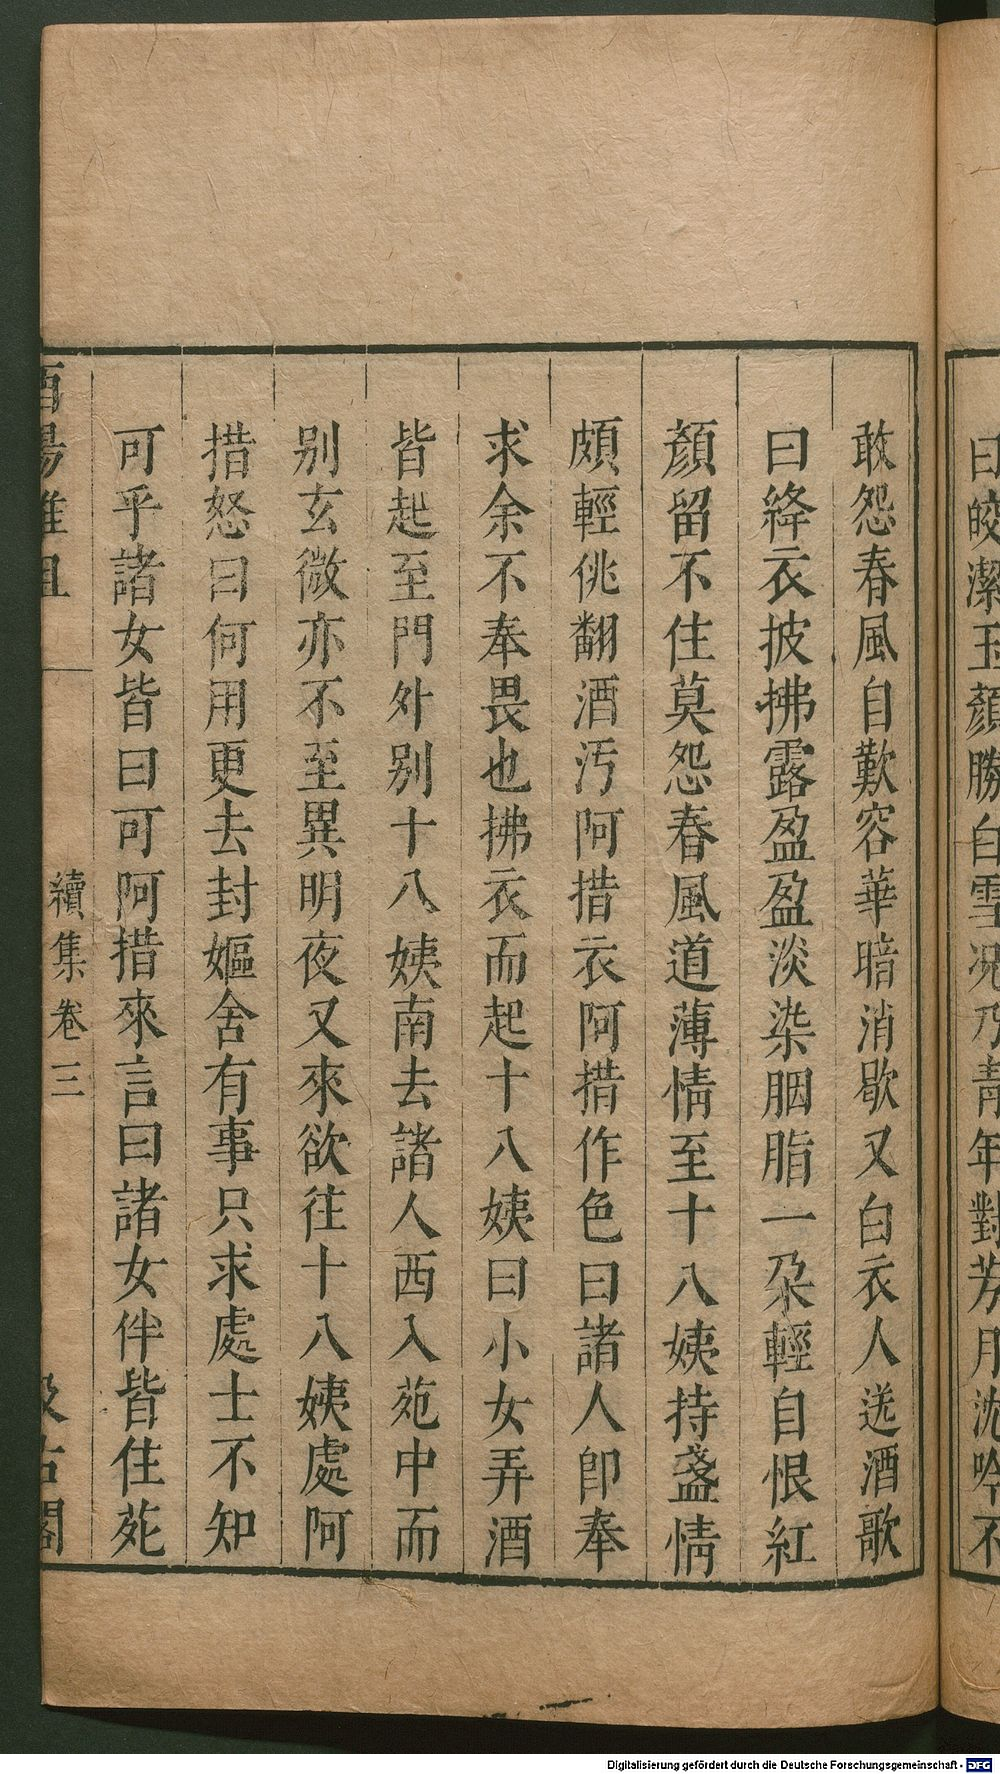 曰皎潔玉顏勝白雪况乃靑年對芳月沈吟不
敢怨春風自歎容華暗消歇又白衣人送酒歌
曰絳衣披拂露盈盈淡染胭脂一朶輕自恨紅
顏留不住莫怨春風道薄情至十八姨持盞情
頗輕佻翻酒汚阿措衣阿措作色曰諸人卽奉
求余不奉畏也拂衣而起十八姨曰小女弄酒
皆起至門外别十八姨南去諸人西入苑中而
别玄微亦不至異明夜又來欲往十八姨處阿
措怒曰何用更去封嫗舍有事只求處士不知
可乎諸女皆曰可阿措來言曰諸女伴皆住苑
酉陽雜俎
續集卷三
汲古閣
Digitalisierung gefördert durch die Deutsche Forschungsgemeinschaft - DFG